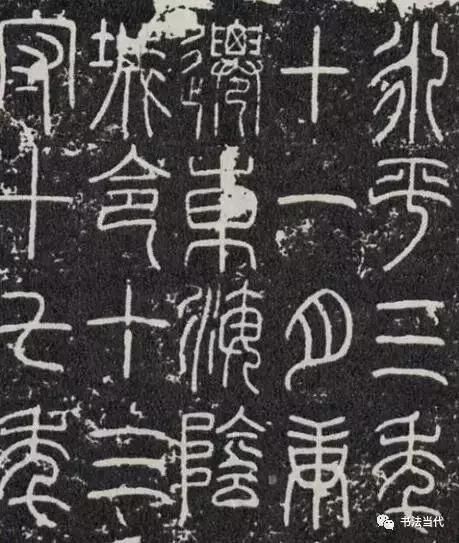 永平三年
十一月庚
遷東海陰
城令十三
守十七年
书法当代